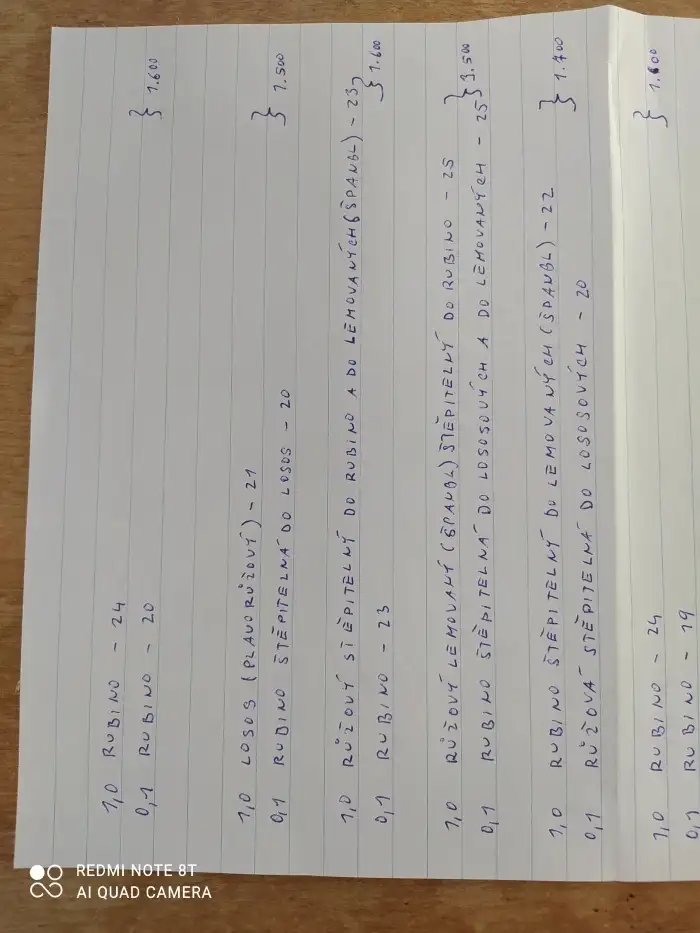 1,0 RUBINO - 24
0,1 RUBINO - 20 } 1.600
1,0 LOSOS (PLAVORŮŽOVÝ) - 21
0,1 RUBINO ŠTĚPITELNÁ DO LOSOS - 20 } 1.500
1,0 RŮŽOVÝ ŠTĚPITELNÝ DO RUBINO A DO LEMOVANÝCH (ŠPANBL) - 23
0,1 RUBINO - 23 } 1.600
1,0 RŮŽOVÝ LEMOVANÝ (ŠPANBL) ŠTĚPITELNÝ DO RUBINO - 25
0,1 RUBINO ŠTĚPITELNÁ DO LOSOSOVÝCH A DO LEMOVANÝCH - 25 } 3.500
1,0 RUBINO ŠTĚPITELNÝ DO LEMOVANÝCH (ŠPANBL) - 22
0,1 RŮŽOVÁ ŠTĚPITELNÁ DO LOSOSOVÝCH - 20 } 1.700
1,0 RUBINO - 24
0,1 RUBINO - 19 } 1.600
REDMI NOTE 8T
AI QUAD CAMERA